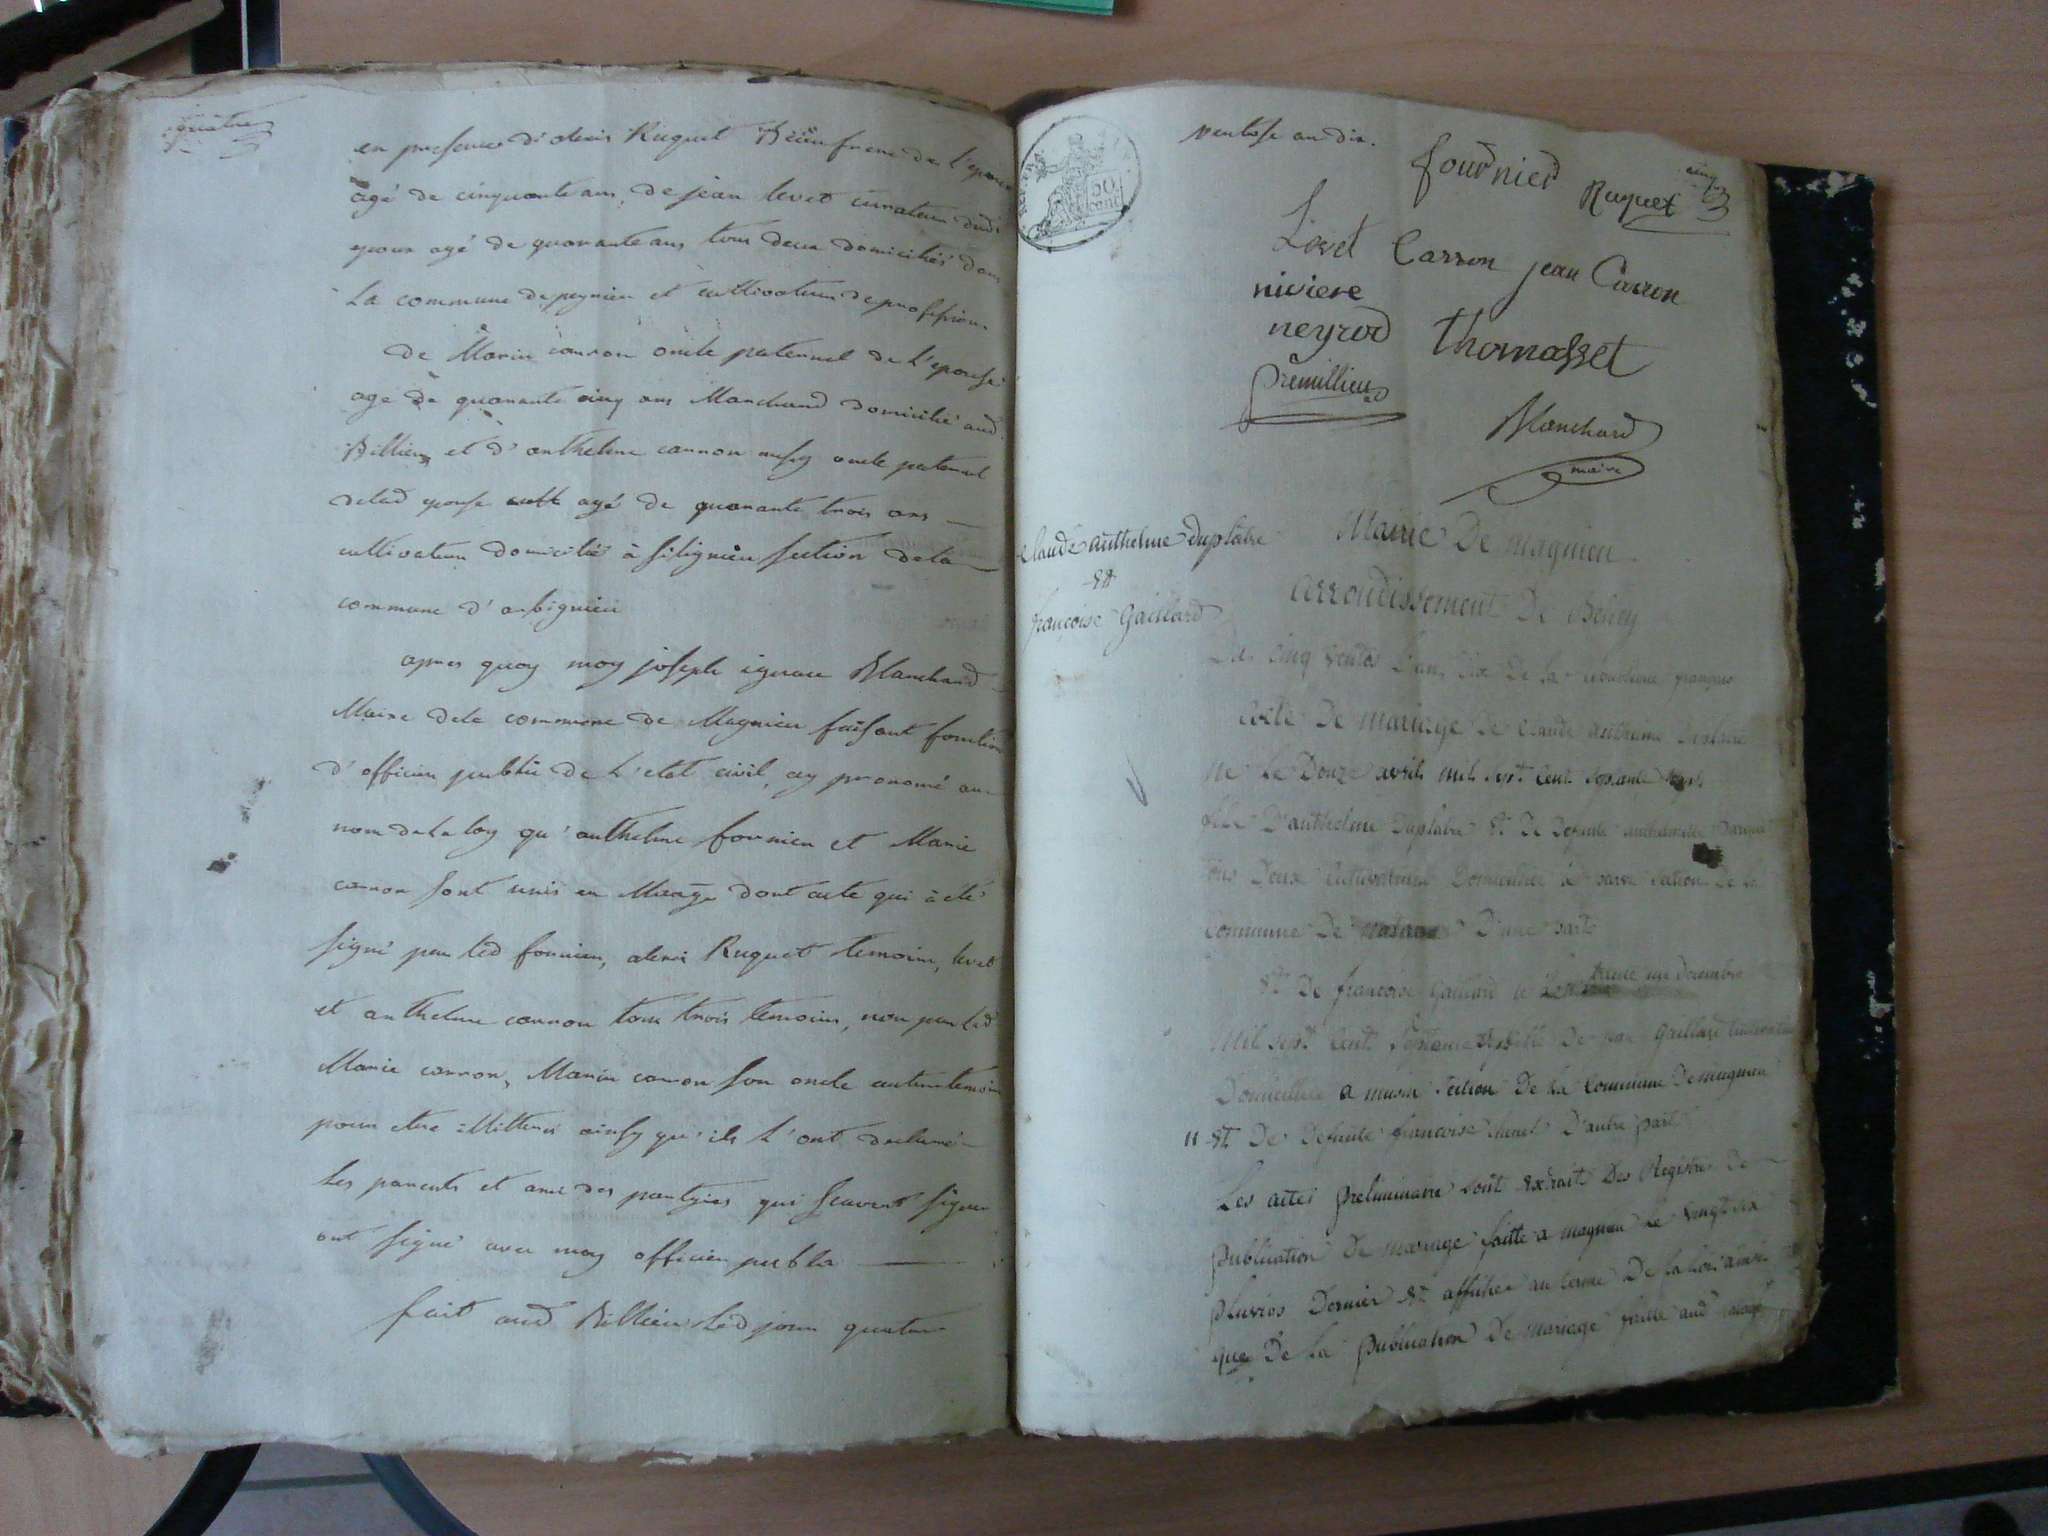 quatre
en presence d'alexis Ruguet Beaufrere de l'epoux
agé de cinquante ans, de jean levet curateur dudt
epoux agé de quarante ans tous deux domiciliés dans
la commune de peyrieu et cultivateur de profession
de Marin carron oncle paternel de l'epouse
age de quarante cinq ans Marchand domicilié aud
Billieu et d'anthelme carron aussy oncle paternel
delad epouse agé de quarante trois ans
cultivateur domicilié à Silignieu section de la
commune d'arbignieu
apres quoy moy joseph ignace Blanchard
Maire dela commune de Magnieu faisant fonction
d'officier public de l'etat civil, ay prononcé au
nom de la loy qu'anthelme fornier et Marie
carron sont unis en Mariage dont acte qui à été
signé par led fournier, alexis Ruguet temoins, levet
et anthelme carron tous trois temoins, non par lad
Marie carron, Marin carron son oncle autre temoin
pour etre illitterés ainsy qu'ils l'ont declaré
les parents et ami des partyies qui scavent signer
ont signé avec moy officier public
fait aud Billieu led jour quatre
ventose an dix.
cinq
fournier
Ruguet
50 cent
Lovet Carron jean Carron
niviere
neyrod thomasset
Premillieu
Blanchard
maire
Claude anthelme duplatre
Et
françoise Gaillard
Mairie De magnieu
arrondissement De Belley
Du cinq ventos L'an dix De La republique française
acte De mariage De Claude anthelme Duplatre
né Le Douze avril mil sept Cent septante
fils D'anthelme Duplatre Et De Defunte
tous Deux cultivateurs Domicilliés à section De la
Commune De D'une part
Et De françoise Gaillard né Le trente un decembre
Mil sept Cent septante fille De Gaillard
Domicillié a musin section De La Commune De magnieu
11 Et De Defunte françoise D'autre part
Les actes preliminaire sont Extrait Des Registres De
publication De mariage faitte a magnieu Le vingt six
pluvios Dernier Et affichée au terme De la Loi ainsi
que De La publication De mariage faitte aud